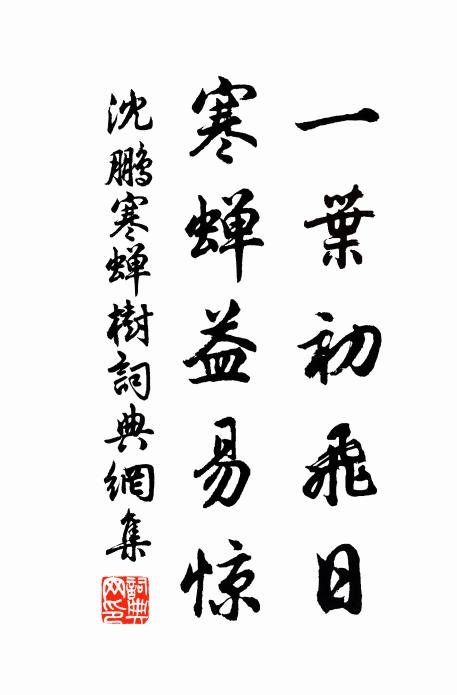 一葉初飛日
寒蝉益易惊
沈鵬寒蝉樹詞典網集
詞典網印